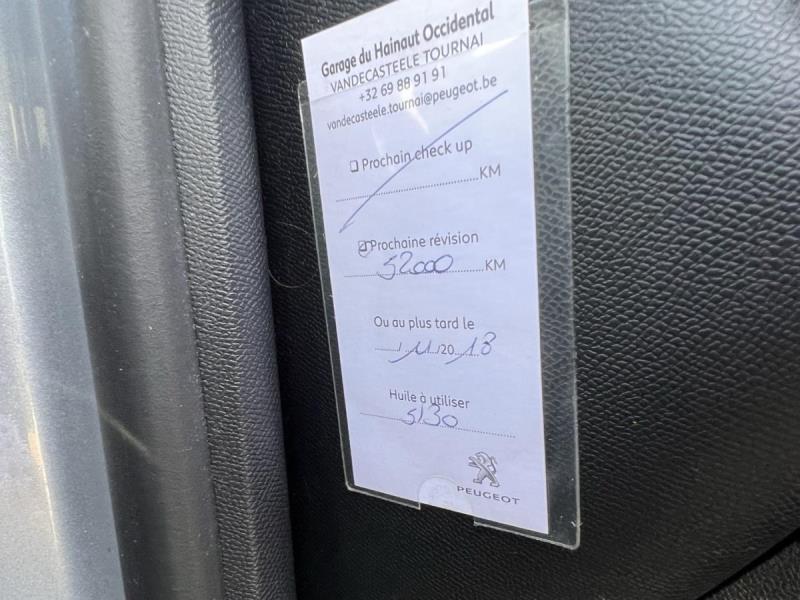 Garage du Hainaut Occidental
VANDECASTEELE TOURNAI
+32 69 88 91 91
vandecasteele.tournai@peugeot.be
❑ Prochain check up
....................................KM
☑ Prochaine révision
52000 KM
Ou au plus tard le
....../11/2018
Huile à utiliser
5/30
PEUGEOT